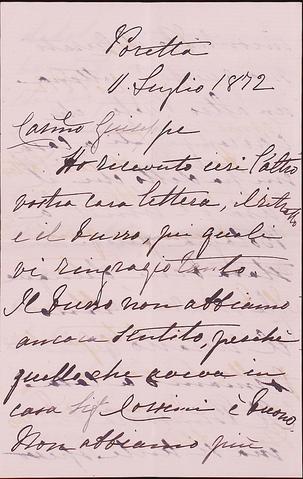 Poretta
11. Luglio 1872
Carino Giuseppe
Ho ricevuto ieri l'altro
vostra cara lettera, il
e il Burro, pei quali
vi ringrazio tanto.
Il Burro non abbiamo
ancora sentito, perchè
quello che aveva in
casa Sigr Corsini è buono.
Non abbiamo più